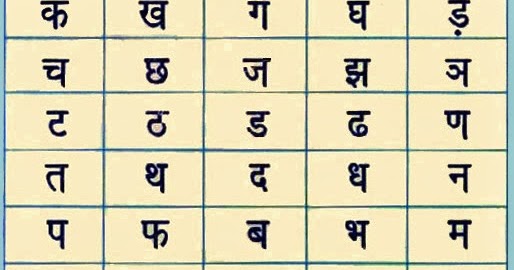 क ख ग घ ड़
च छ ज झ ञ
ट ठ ड ढ ण
त थ द ध न
प फ ब भ म